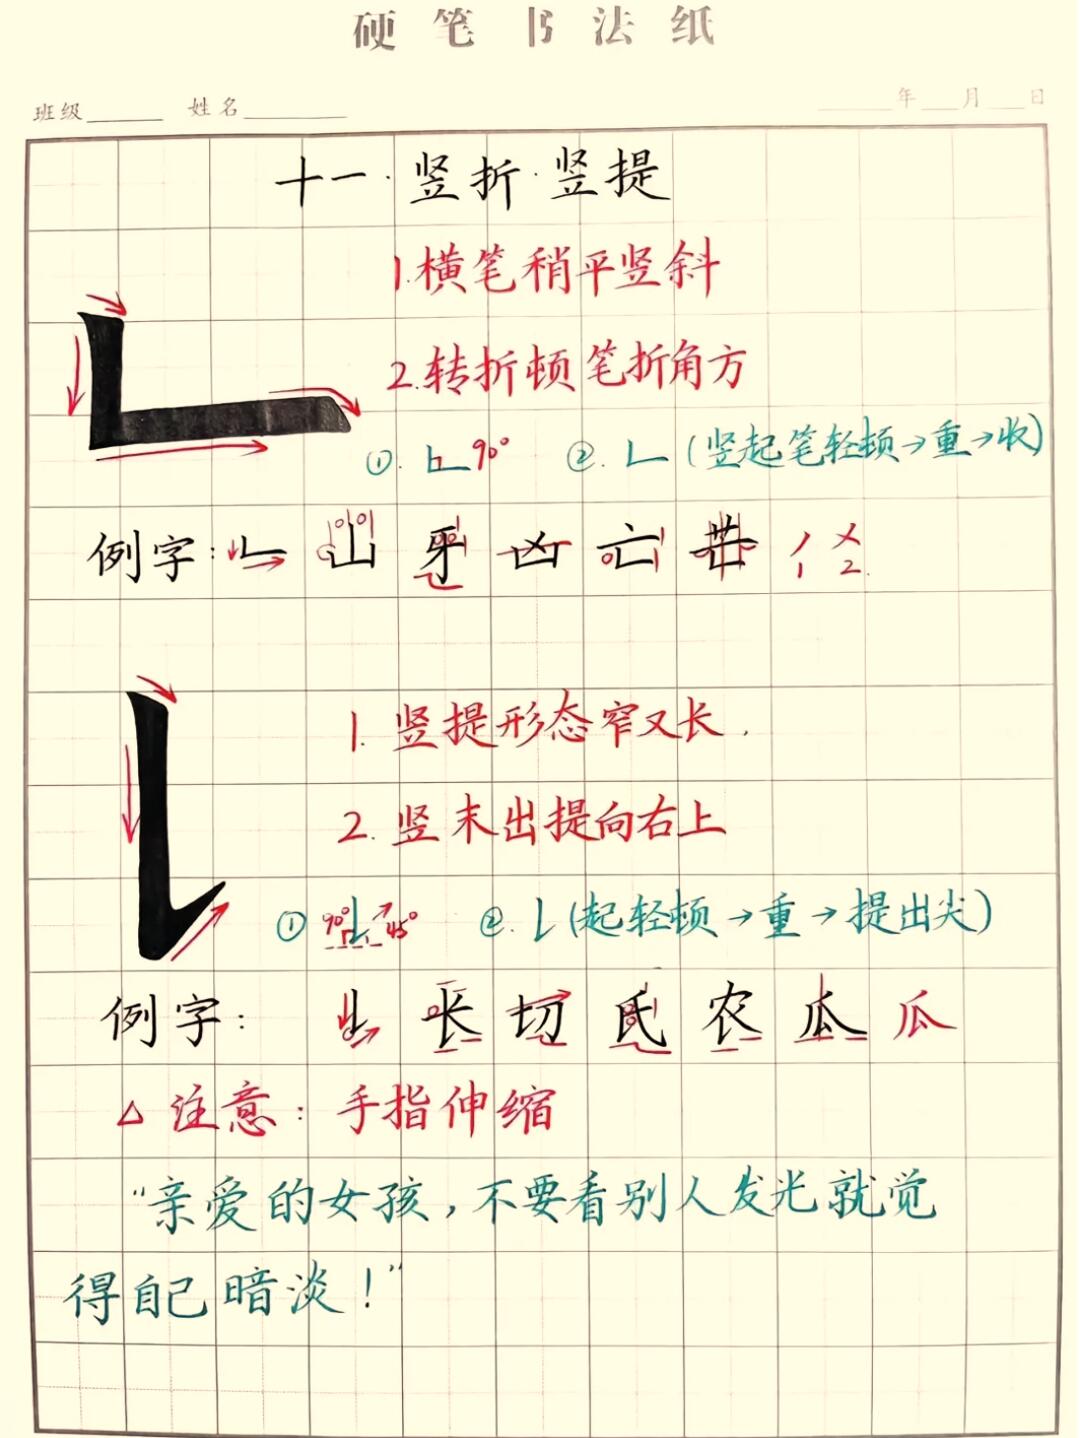 硬笔书法纸
班级 姓名 年 月 日
十一.竖折.竖提
1.横笔稍平竖斜
2.转折顿笔折角方
①. 90° ②. (竖起笔轻顿→重→收)
例字: 山 牙 凶 亡 世 1 2.
1. 竖提形态窄又长.
2. 竖末出提向右上
① 90° 45° ②. (起轻顿→重→提出尖)
例字: 长 切 氏 农 瓜 瓜
△ 注意: 手指伸缩
“亲爱的女孩,不要看别人发光就觉
得自己暗淡!”